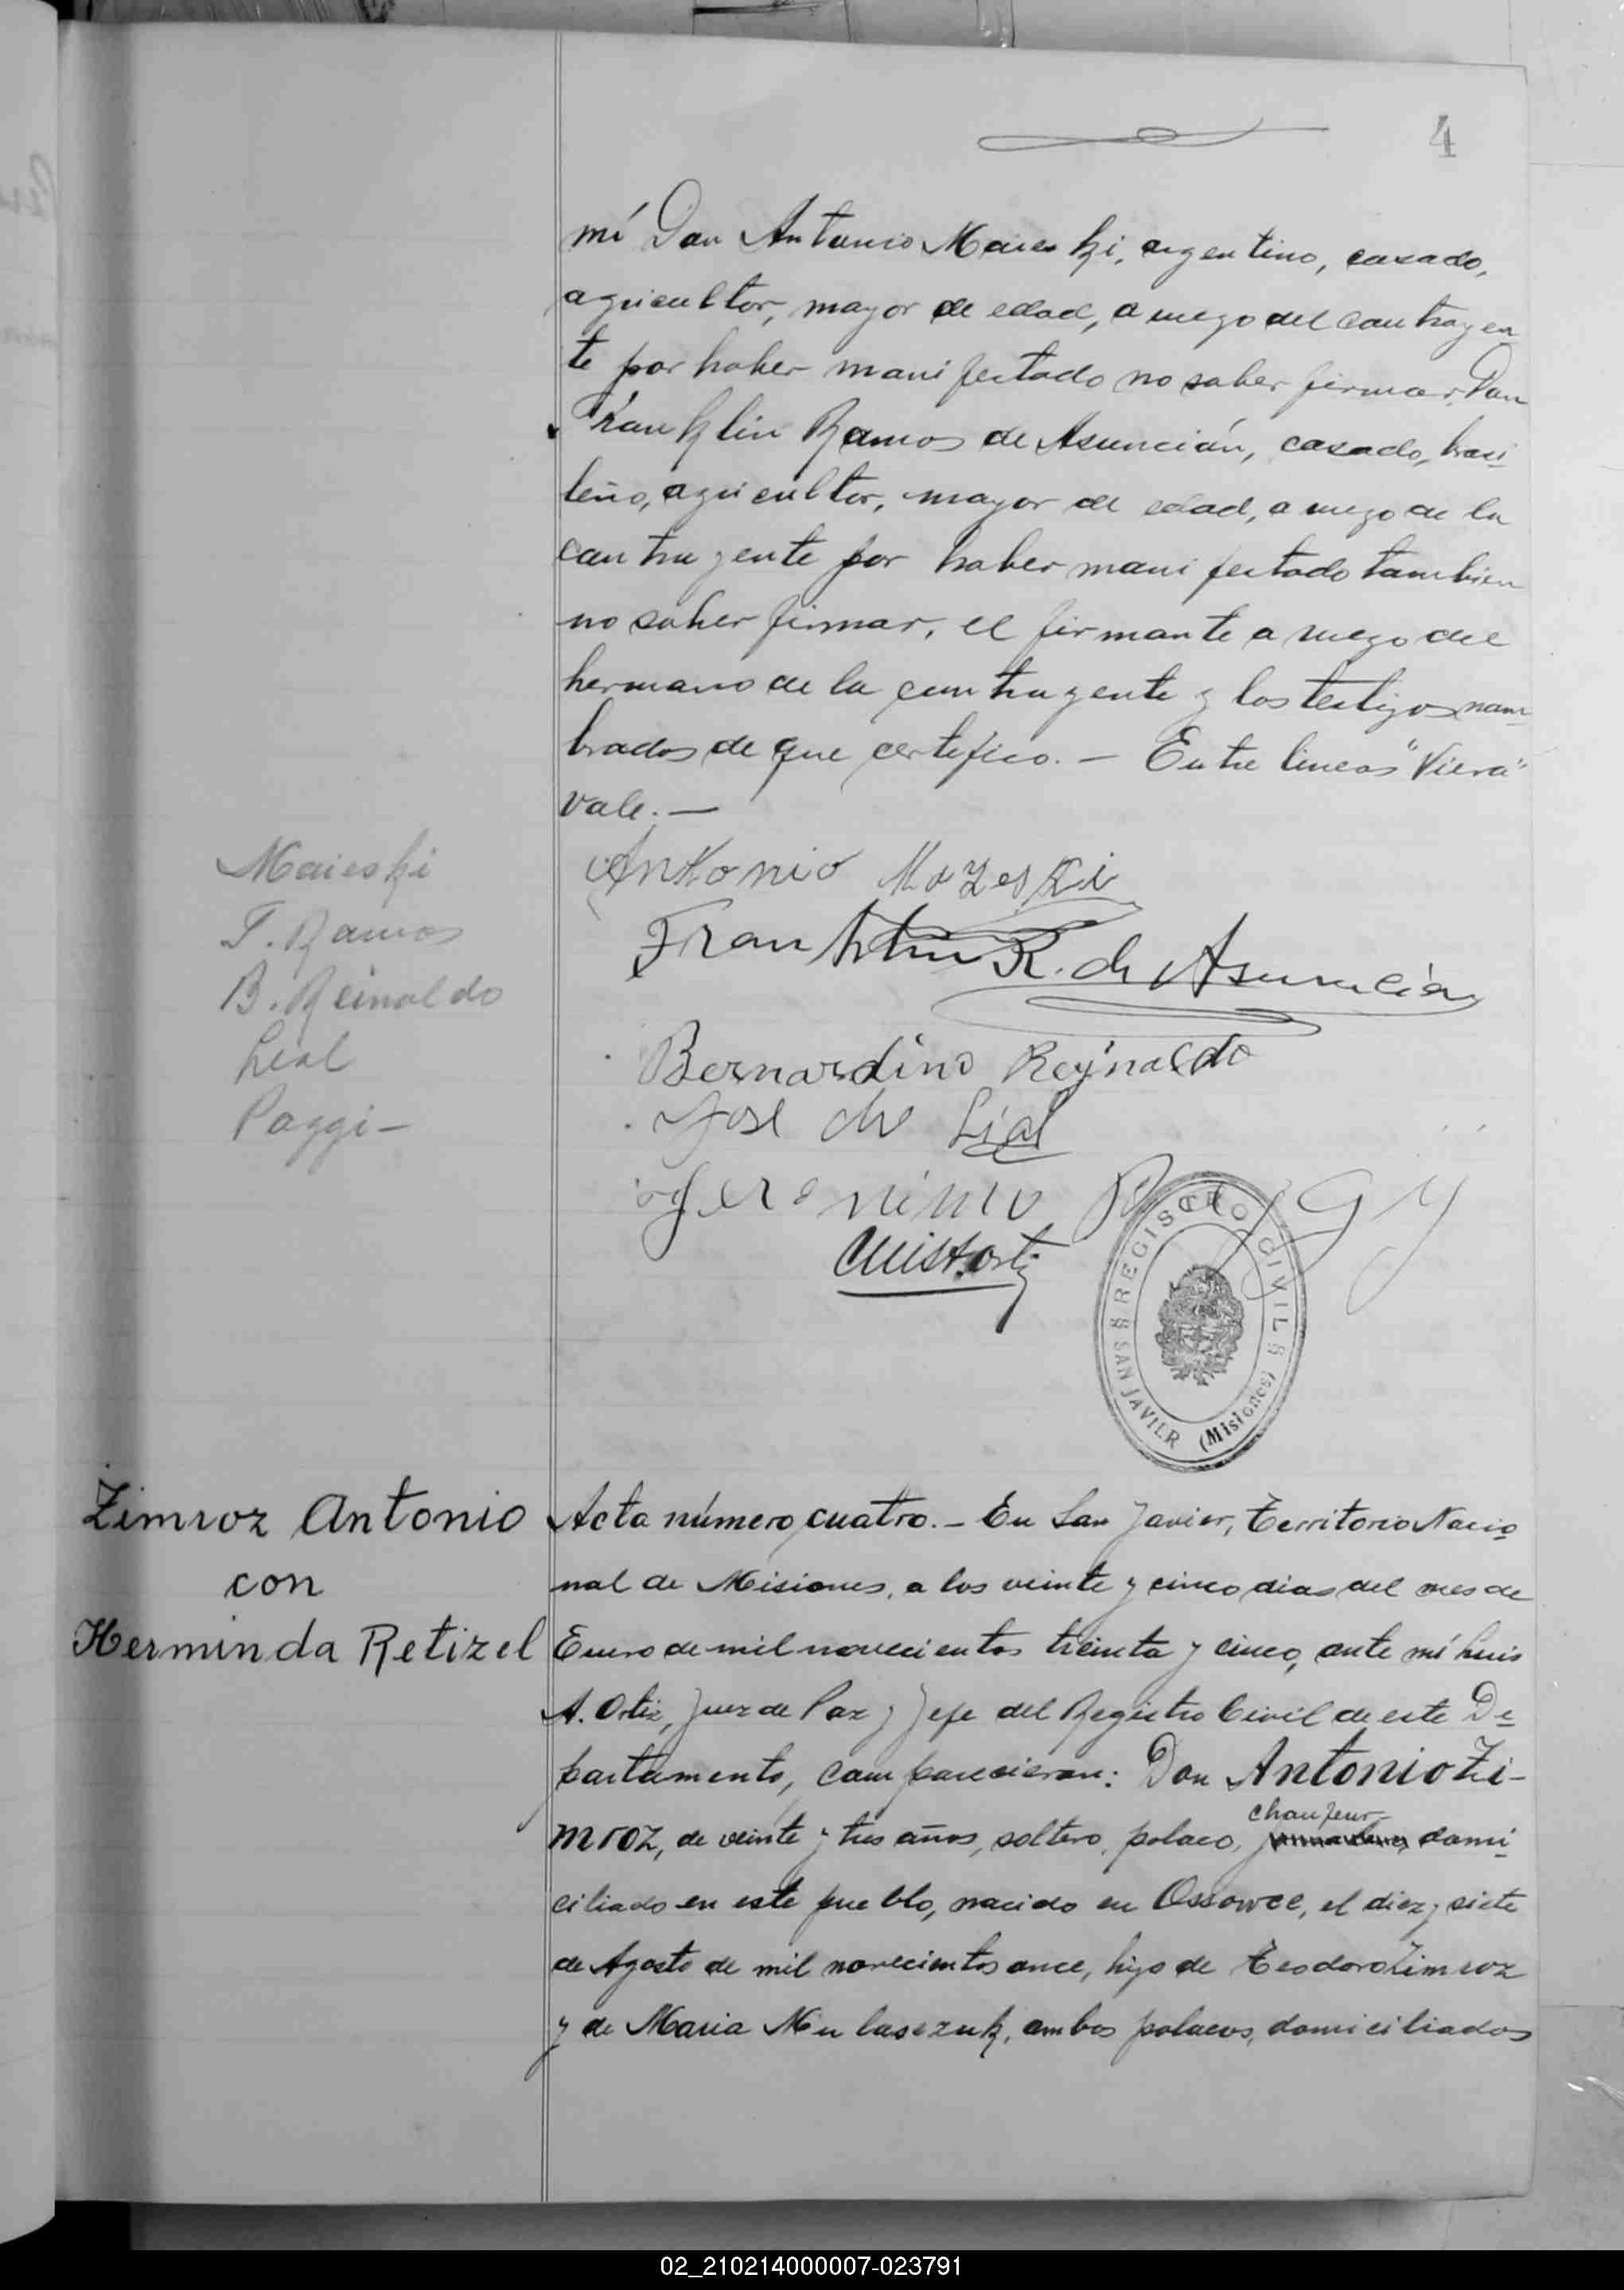 4
mí Don Antonio Maieski, argentino, casado,
agricultor, mayor de edad, a ruego del contrayen
te por haber manifestado no saber firmar, Don
Franklin Ramos de Asunción, casado, brasi-
leño, agricultor, mayor de edad, a ruego de la
contrayente por haber manifestado tambien
no saber firmar, el firmante a ruego del
hermano de la contrayente y los testigos nom-
brados de que certifico. — Entre lineas "Viera"
vale. —
Maieski
F. Ramos
B. Reinaldo
Leal
Poggi —
Antonio Mazeski
Franklin R. de Asunción
Bernardino Reynaldo
José de Lial
Geronimo Poggy
Luis A. Ortiz
REGISTRO CIVIL
SAN JAVIER (Misiones)
Zimroz Antonio
con
Herminda Retizel
Acta número cuatro. — En San Javier, Territorio Nacio-
nal de Misiones, a los veinte y cinco dias del mes de
Enero de mil novecientos treinta y cinco, ante mí Luis
A. Ortiz, Juez de Paz y Jefe del Registro Civil de este De-
partamento, comparecieron: Don Antonio Zi-
chaufeur
mroz, de veinte y tres años, soltero, polaco, domi-
ciliado en este pueblo, nacido en Ossowce, el diez y siete
de Agosto de mil novecientos once, hijo de Teodoro Zimroz
y de Maria Mulasczuk, ambos polacos, domiciliados
02_210214000007-023791